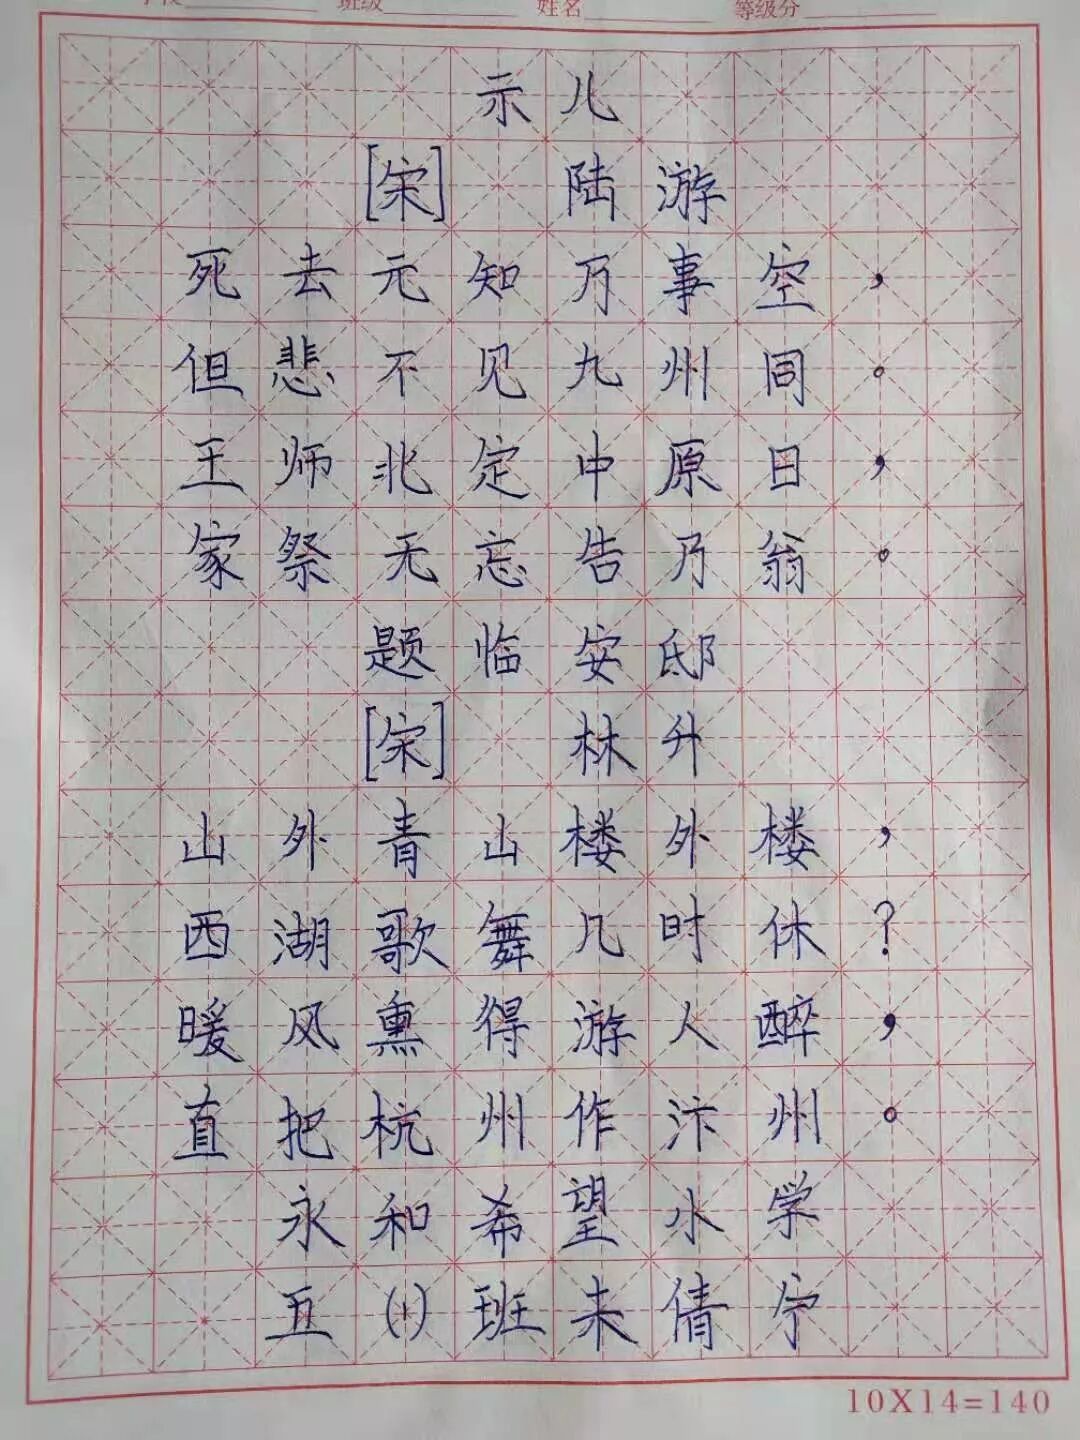 班级 姓名 等级分
示儿
[宋] 陆游
死去元知万事空，
但悲不见九州同。
王师北定中原日，
家祭无忘告乃翁。
题临安邸
[宋] 林升
山外青山楼外楼，
西湖歌舞几时休？
暖风熏得游人醉，
直把杭州作汴州。
永和希望小学
五(1)班未倩宁
10X14=140